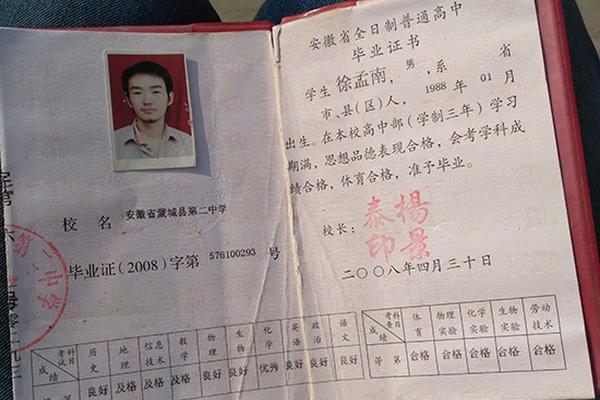 校 名 安徽省蒙城县第二中学
毕业证(2008)字第 576100293 号
第二中学
考试科目 历史 地理 信息技术 数学 物理 生物 化学 英语 政治 语文
成绩 良好 及格 及格 及格 良好 良好 优秀 良好 良好 良好
安徽省全日制普通高中
毕业证书
学生 徐孟南，男，系 省
市、县(区)人，1988 年 01 月
出生。在本校高中部(学制三年)学习
期满，思想品德表现合格，会考学科成
绩合格，体育合格，准予毕业。
校长：
杨景泰印
二〇〇八年四月三十日
考查科目 体育 物理实验 化学实验 生物实验 劳动技术
成绩 等第 合格 合格 合格 合格 合格